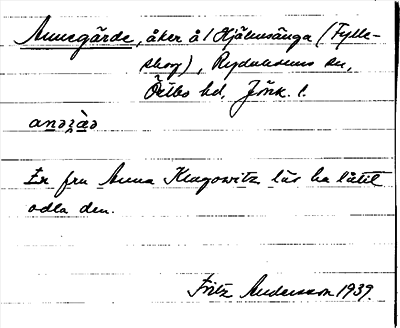 Annegärde, åker å l Hjälmsänga (Fylle-
skog), Rydaholms sn,
Östbo hd, Jönk. l.
En fru Anna Klagowitz lär ha låtit
odla den.
Fritz Andersson 1939.